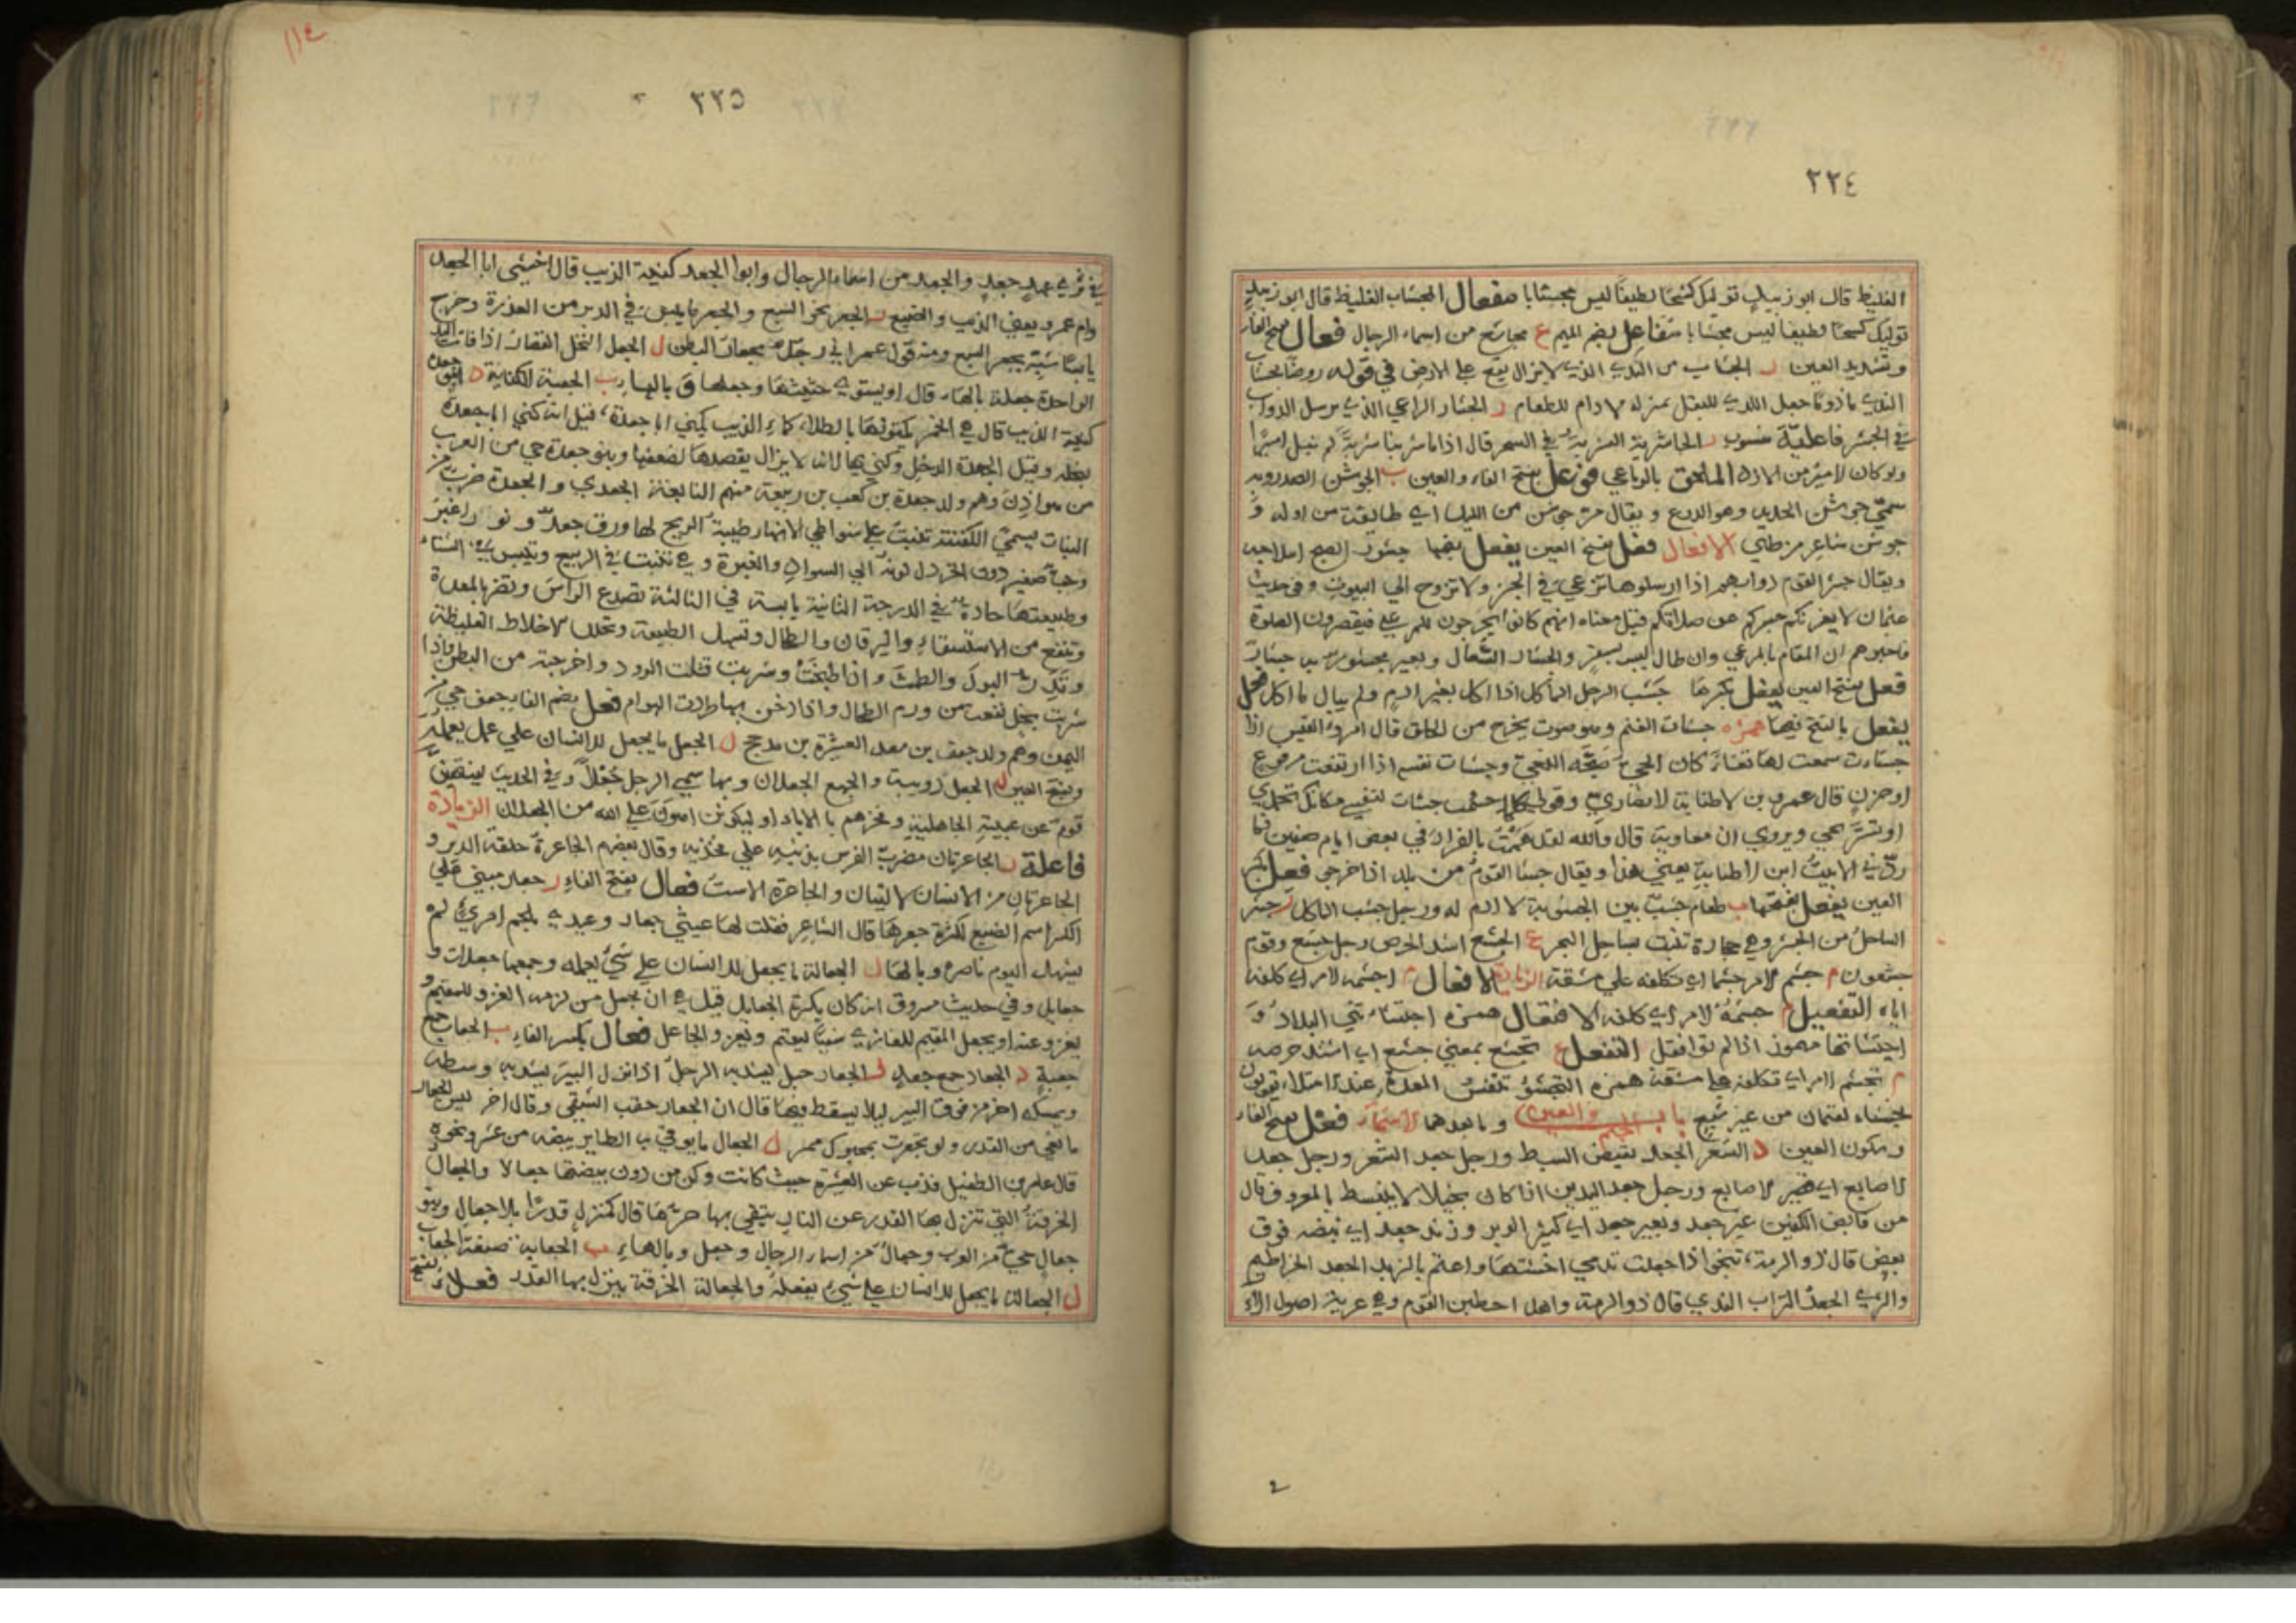 ٢٢٤
الغليظ قال ابو زبيد توليك كشحا لطيفا ليس مجشابا مفعال المجشاب الغليظ قال ابو زبيد
توليك كشحا لطيفا ليس مجشابا مفاعل بضم الميم ع مجاشع من اسماء الرجال فعال بفتح الفاء
وتشديد العين ب الجشاب من الندي الذي لا يزال يقع علي الارض في قوله روضا بجشاب
الندي ماذوما جعل الندي للبقل بمنزله الادام للطعام ر الجشار الراعي الذي يرسل الدواب
في الجشر فاعلية منسوب ر الجاشرية الشربة في السحر قال اذا ما شربنا شربة لم نبل اميرا
ولو كان الامير من الازد الملحق بالرباعي فوعل بفتح الفاء والعين ن الجوشن الصدر وبه
سمي جوشن الحديد وهو الدرع ويقال مر جوشن من الليل اي طايفة من اوله و
جوشن شاعر من طي الافعال فعل بفتح العين يفعل بضمها جشور الصبح انبلاجه
ويقال جشر القوم دوابهم اذا ارسلوها ترعي في الجشر ولا تروح الي البيوت وفي حديث
عثمان لا يغرنكم جشركم عن صلاتكم قيل معناه انهم كانوا يخرجون للمرعي فيقصرون الصلوة
فاخبرهم ان المقام بالمرعي وان طال ليس بسفر والجشار السعال وبعير مجشور به جشار
فعل بفتح العين يفعل بكسرها جشب الرجل الماكل اذا اكل بغير ادم ولم يبال ما اكل فعل
يفعل بالفتح فيهما همزه جشات الغنم وهو صوت يخرج من الحلق قال امرؤ القيس اذا
جشات سمعت لها ثغاء كان الحي صبحه النعي وجشات نفسه اذا ارتفعت من فزع
او حزن قال عمرو بن الاطنابة الانصاري وقولي كلما جشات لنفسي مكانك تحمدي
او تستريحي ويروي ان معاوية قال والله لقد هممت بالفرار في بعض ايام صفين فما
ردني الا بيت ابن الاطنابة يعني هذا ويقال جشا القوم من بلد اذا خرجوا فعل بكسر
العين يفعل بفتحها ب طعام جشب بين الجشوبة لا ادم له ورجل جشب الماكل ر جشر
الساحل من الجشر وهي حجارة تنبت بساحل البحر ع الجشع اشد الحرص رجل جشع وقوم
جشعون م جشم الامر جشما اي تكلفه علي مشقة الزيادة الافعال م اجشمه الامر اي كلفه
اياه التفعيل م جشمه الامر اي كلفه الافتعال همزه اجتشاء تني البلاد و
اجتشاتها مهموز اذا لم توافقك التفعل ع تجشع بمعني جشع اي اشتد حرصه
م تجشم الامر اي تكلفه علي مشقة همزه التجشؤ تنفس المعدة عند امتلاء يقولون
تجشاء لقمان من غير شبع باب الجيم والعين وما بعدهما الاسماء فعل بفتح الفاء
وسكون العين د الشعر الجعد نقيض السبط ورجل جعد الشعر ورجل جعد
الاصابع اي قصير الاصابع ورجل جعد اليدين اذا كان بخيلا لا ينبسط بالمعروف قال
من قابض الكفين غير جعد وبعير جعد اي كثير الوبر وزند جعد اي نبضه فوق
بعض قال ذو الرمة تنجو اذا جعلت تدمي اخشتها واعتم بالزبد الجعد الخراطيم
والثري الجعد التراب الندي قال ذو الرمة واهل احطبن القوم وهي عرية اصول الالاء
٢٢٥
في ثري عمد جعد والجعد من اسماء الرجال وابوا الجعد كنية الذيب قال اخشي ابا الجعد
وام عمرو يعني الذيب والضبع ر الجعر نجو السبع والجعر ما يبس في الدبر من العذرة وخرج
يابسا شبه بجعر السبع ومنه قول عمر اني رجل مجعار البطن ل الجعل النخل القصار اذا فاتت اليد
الواحدة جعلة بالهاء قال او يستوي جثيثها وجعلها ق بالهاء ب الجعبة الكنانة د ابو جعدة
كنية الذيب قال هي الخمر يكنونها بالطلاء كما الذيب يكني ابا جعدة قيل انه كني ابا جعدة
لبخله وقيل الجعدة الدخل وكني بها لانه لا يزال يقصدها لضعفها وبنو جعدة حي من العرب
من هوازن وهم ولد جعدة بن كعب بن ربيعة منهم النابغة الجعدي والجعدة ضرب من
النبات يسمي الكنفنة تنبت علي شواطي الانهار طيبة الريح لها ورق جعد ونور اغبر
وحب صغير دون الخردل لونه الي السواد والغبرة وهي تنبت في الربيع وتيبس في الشتاء
وطبيعتها حارة في الدرجة الثانية يابسة في الثالثة تصدع الراس وتضر بالمعدة
وتنفع من الاستسقاء واليرقان والطحال وتسهل الطبيعة وتحلل الاخلاط الغليظة
وتدر البول والطمث واذا طبخت وشربت قتلت الدود واخرجته من البطن فاذا
شربت بخل نفعت من ورم الطحال واذا دخن بها طردت الهوام فعل بضم الفاء جعف حي من
اليمن وهم ولد جعف بن سعد العشيرة بن مذحج ل الجعل ما يجعل للانسان علي عمل يعمله
وبفتح العين ل الجعل دويبة والجمع الجعلان وبها سمي الرجل جعلا وفي الحديث لينتهين
قوم عن عبية الجاهلية وفخرهم بالاباء او ليكونن اهون علي الله من الجعلان الزيادة
فاعلة ر الجاعرتان مضرب الفرس بذنبه علي فخذيه وقال بعضهم الجاعرة حلقة الدبر و
الجاعرتان من الانسان الاليتان والجاعرة الاست فعال بفتح الفاء ر جعار مبني علي
الكسر اسم الضبع لكثرة جعرها قال الشاعر فقلت لها عيثي جعار وعيدي بلحم امريء لم
يشهد اليوم ناصره وبالهاء ل الجعالة ما يجعل للانسان علي شيء يعمله وجمعها جعالات و
جعايل وفي حديث مسروق انه كان يكره الجعايل قيل هي ان يجعل من لزمه الغزو للمقيم و
يغزو عنه او يجعل المقيم للغازي شيئا ليقيم ويغزو الجاعل فعال بكسر الفاء ب الجعاب جمع
جعبة د الجعاد جمع جعد ر الجعار حبل يشد به الرجل اذا نزل البير يشد به وسطه
ويمسكه اخر من فوق البير ليلا يسقط فيها قال ان الجعار حقب الشقي وقال اخر ليس الجعار
مانعي من القدر ولو تجعرت بمحبوك ممر ل الجعال ما يوقي به الطاير بيضه من عش ونحوه
قال عامر بن الطفيل فذب عن العشيرة حيث كانت وكن من دون بيضتها جعالا والجعال
الخرقة التي تنزل بها القدر عن النار يتقي بها حرها قال كمنزل قدرا بلا جعال وبنو
جعال حي من العرب وجعال من اسماء الرجال وجعل وبالهاء ب الجعابة صنعة الجعاب
ل الجعالة ما يجعل للانسان علي شيء يفعله والجعالة الخرقة ينزل بها القدر فعلاء بفتح